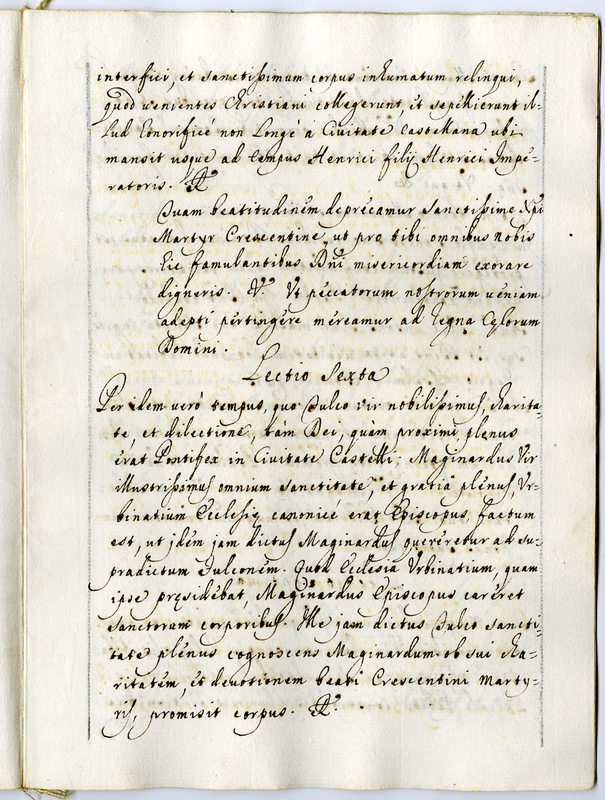 interffici, et sanctissimum corpus inhumatum relinqui,
quod venientes Christiani collegerunt, et sepellierunt il-
lud honorificè non Longè a Civitate Castellana ubi
mansit usque ad tempus Henrici filij Henrici Impe-
ratoris. ℟.
Tuam beatitudinem deprecamur Sanctissime Xpi
Martyr Crescentine, ut pro tibi omnibus nobis
hic famulantibus Dñi misericordiam exorare
digneris. ℣. Ut peccatorum nostrorum veniam
adepti pertingere mereamur ad regna Cęlorum
Domini.
Lectio Sexta
Per idem verò tempus, quo Fulco vir nobilissimus, charita-
te, et dilectione, tàm Dei, quàm proximi, plenus
erat Pontifex in Civitate Castelli; Maginardus Vir
illustrissimus omnium sanctitate, et gratia plenus, Ur-
binatium Ecclesię, canonicè erat Episcopus, factum
est, ut idem jam dictus Maginardus quereretur ad su-
pradictum Fulconem. Quod Ecclesia Urbinatium, quam
ipse pręsidebat, Maginardus Episcopus careret
sanctorum corporibus. Ille jam dictus Fulco sancti-
tate plenus cognoscens Maginardum ob sui cha-
ritatem, et devotionem beati Crescentini Marty-
ris, promisit corpus. ℟.